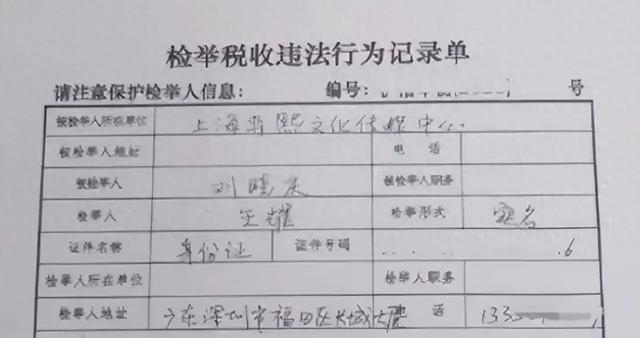 检举税收违法行为记录单
请注意保护检举人信息： 编号： 号
被检举人所在单位 上海 熙文化传媒中心
被检举人地址 电 话
被检举人 刘晓庆 被检举人职务
检举人 王耀 检举形式 实名
证件名称 身份证 证件号码 6
检举人所在单位 检举人职务
检举人地址 广东深圳市福田区长城大厦 话 133